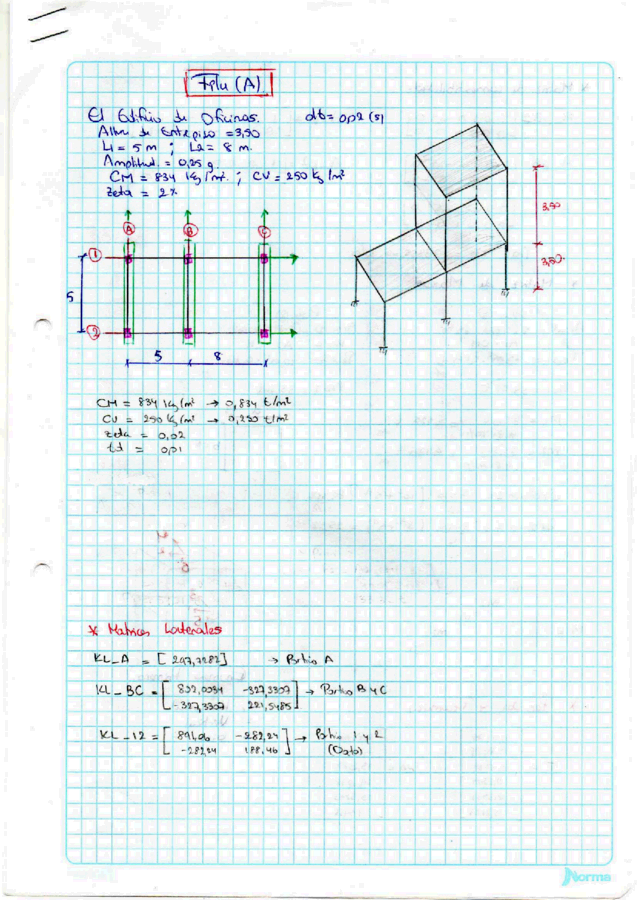 Fila (A)
El Edificio de Oficinas. dt = 0,02 (s)
Altur de Entrepiso = 3,50
L1 = 5 m ; L2 = 8 m.
Amplitud. = 0,25 g
CM = 834 Kg/m². ; CV = 250 Kg/m²
Zeta = 2%
A B C
1
5
2
5 8
3,50
3,50.
CM = 834 Kg/m² → 0,834 t/m²
CV = 250 Kg/m² → 0,250 t/m²
zeta = 0,02
td = 0,01
* Matrices Laterales
KL_A = [297,7282] → Portico A
KL_BC = [ 802,0034 -327,3307 ] → Portico B y C
-327,3307 221,5485
KL_12 = [ -282,24 ] → Portico 1 y 2
-282,24 188,46 (Dato)
Norma